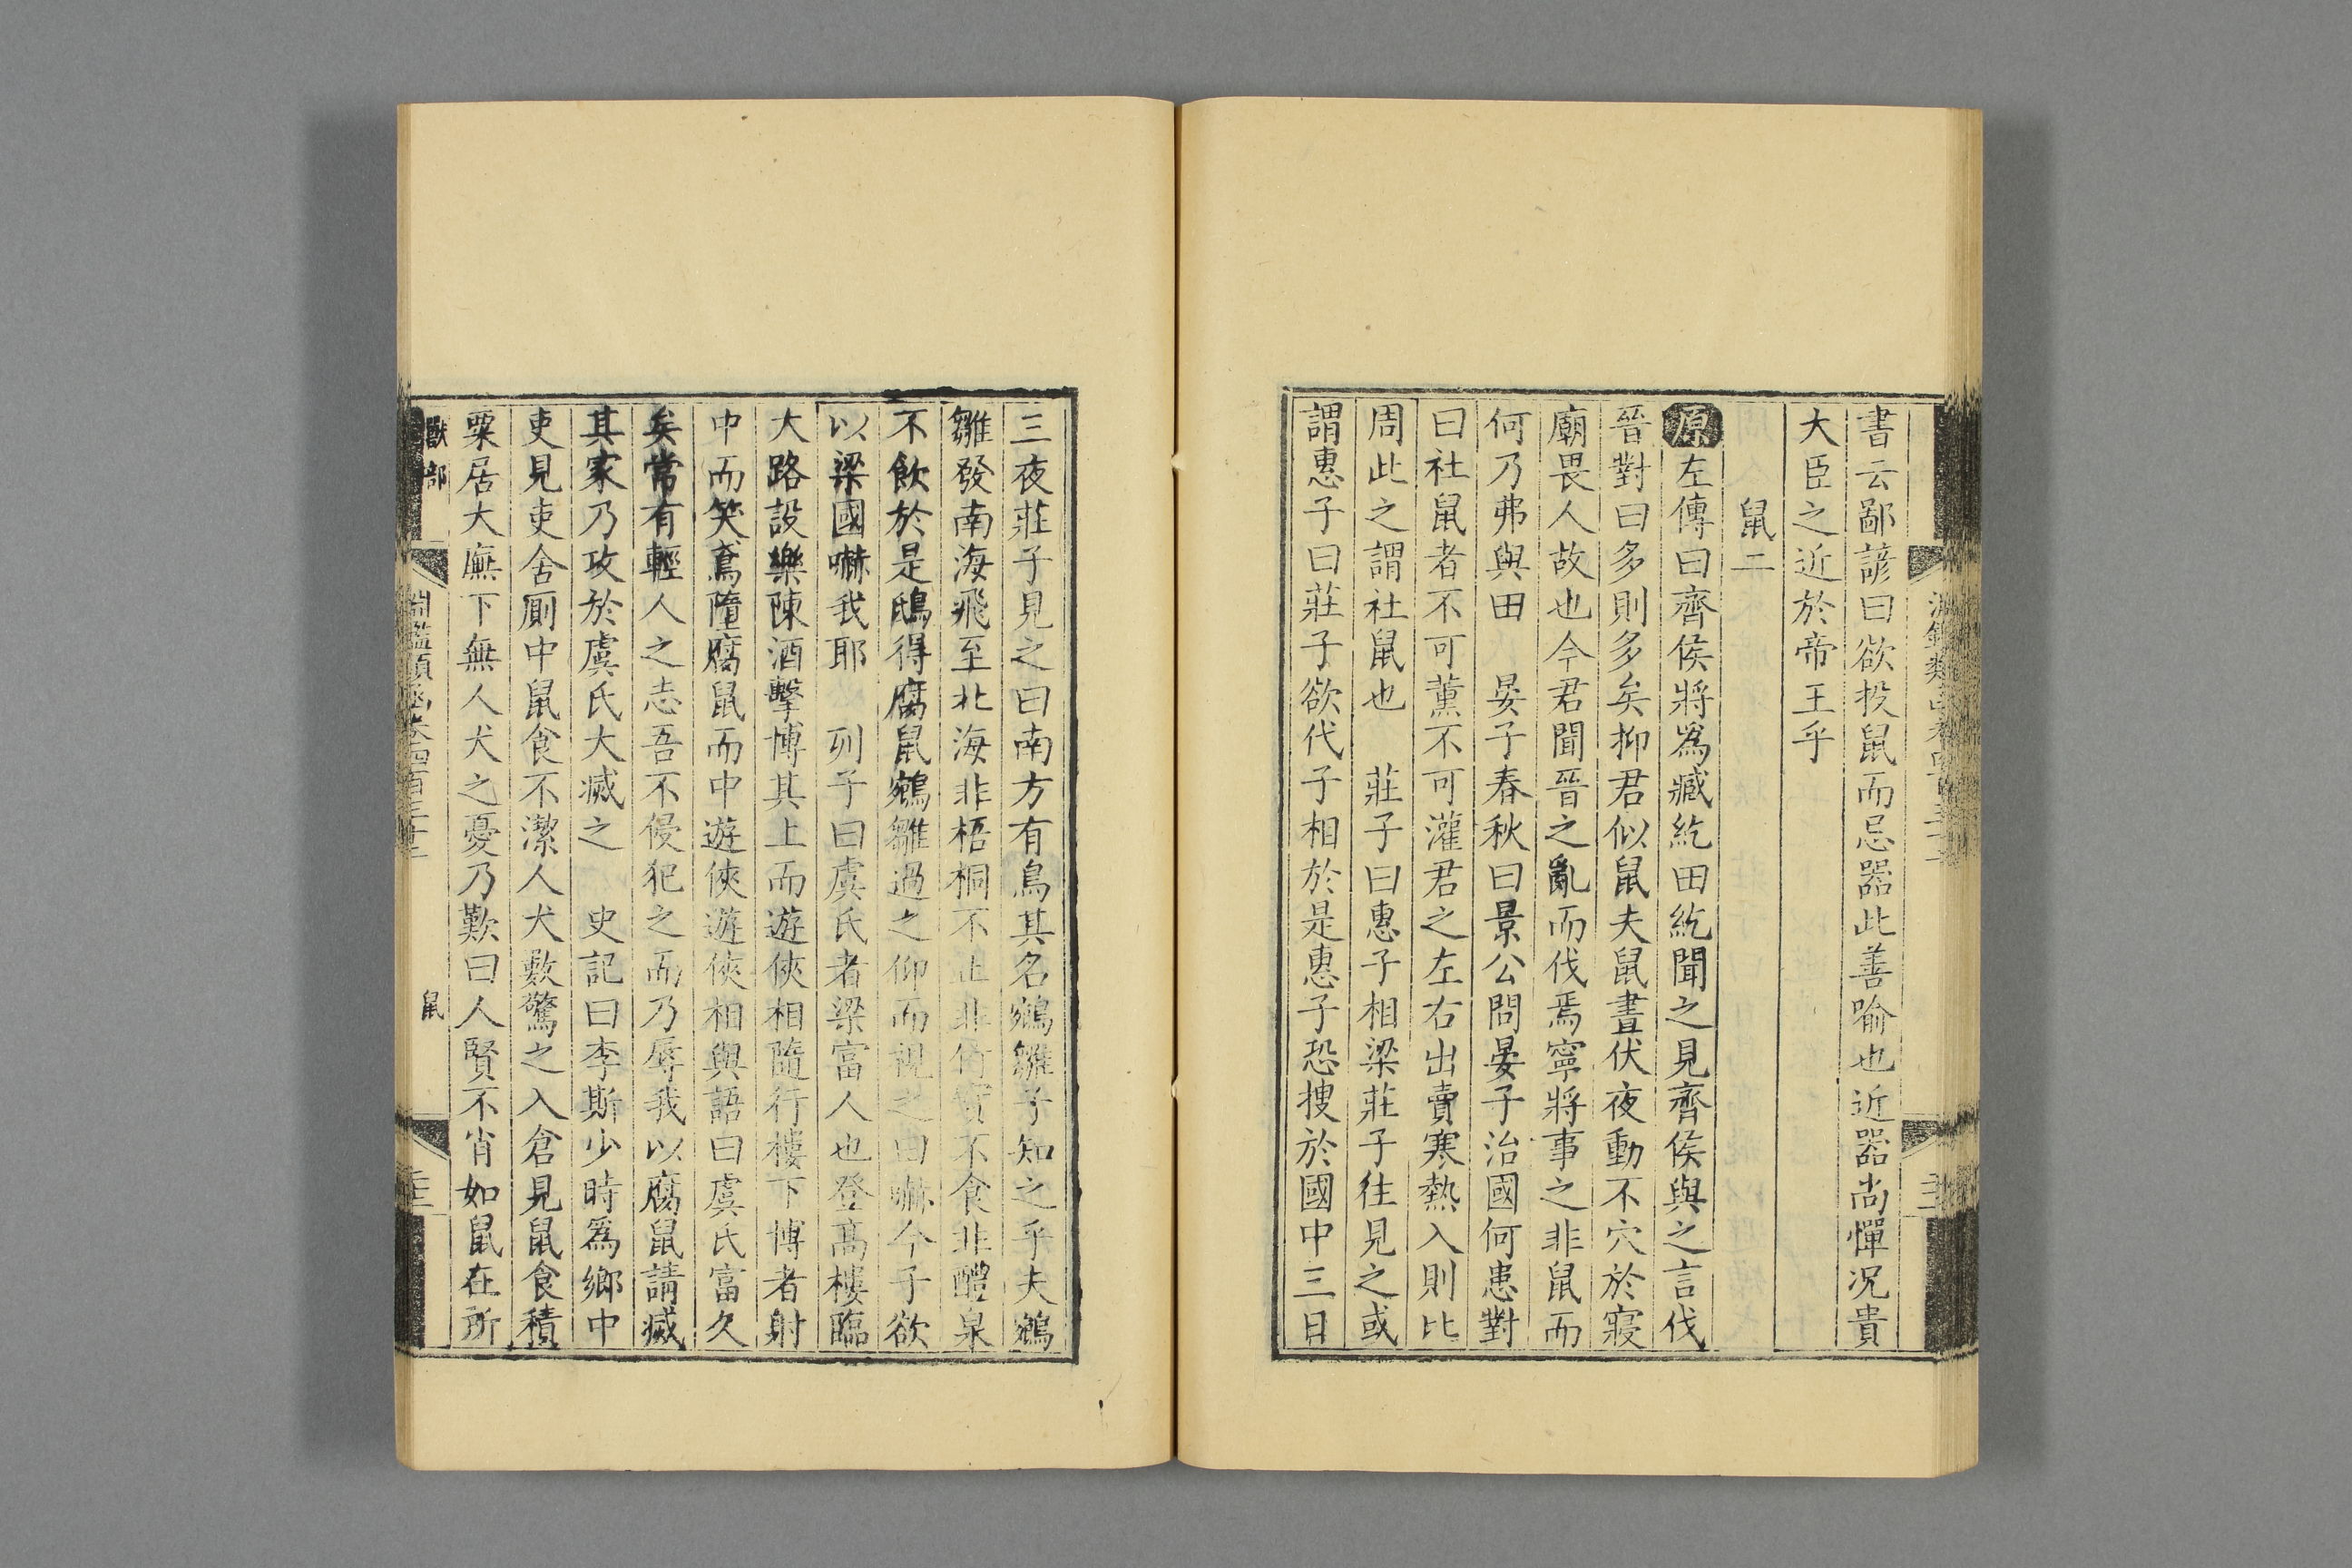 書云鄙諺曰欲投鼠而忌器此善喻也近器尚憚况貴
大臣之近於帝王乎
鼠二
原左傳曰齊侯將爲臧紇田紇聞之見齊侯與之言伐
晉對曰多則多矣抑君似鼠夫鼠晝伏夜動不穴於寢
廟畏人故也今君聞晉之亂而伐焉寧將事之非鼠而
何乃弗與田 晏子春秋曰景公問晏子治國何患對
曰社鼠者不可薰不可灌君之左右出賣寒熱入則比
周此之謂社鼠也 莊子曰惠子相梁莊子往見之或
謂惠子曰莊子欲代子相於是惠子恐搜於國中三日
三夜莊子見之曰南方有鳥其名鵷雛子知之乎夫鵷
雛發南海飛至北海非梧桐不止非竹實不食非醴泉
不飲於是鴟得腐鼠鵷雛過之仰而視之曰嚇今子欲
以梁國嚇我耶 列子曰虞氏者梁富人也登高樓臨
大路設樂陳酒擊博其上而遊俠相隨行樓下博者射
中而笑鳶墮腐鼠而中遊俠遊俠相與語曰虞氏富久
矣常有輕人之志吾不侵犯之而乃辱我以腐鼠請滅
其家乃攻於虞氏大滅之 史記曰李斯少時爲鄉中
吏見吏舍厠中鼠食不潔人犬數驚之入倉見鼠食積
粟居大廡下無人犬之憂乃歎曰人賢不肖如鼠在所
獸部
鼠